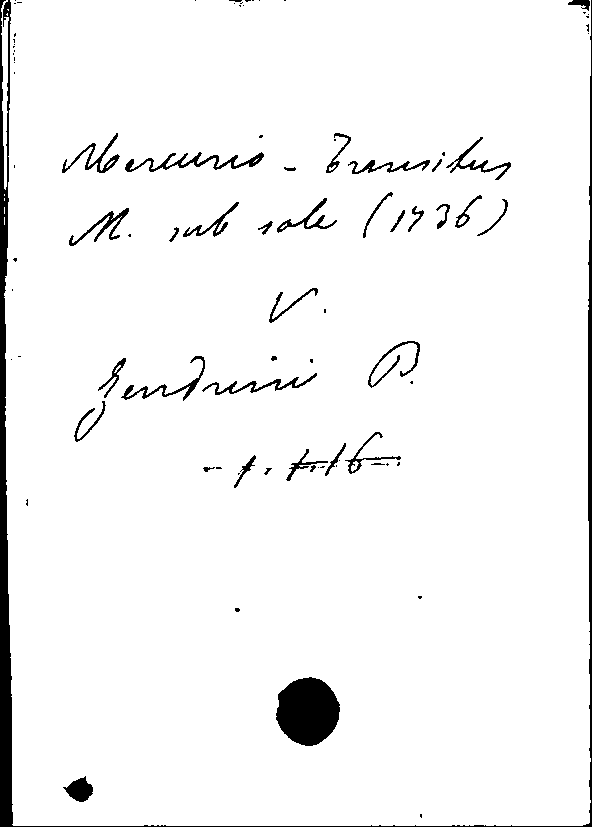 Mercurio - Transitus
M. sub sole (1736)
V.
Zendrini B.